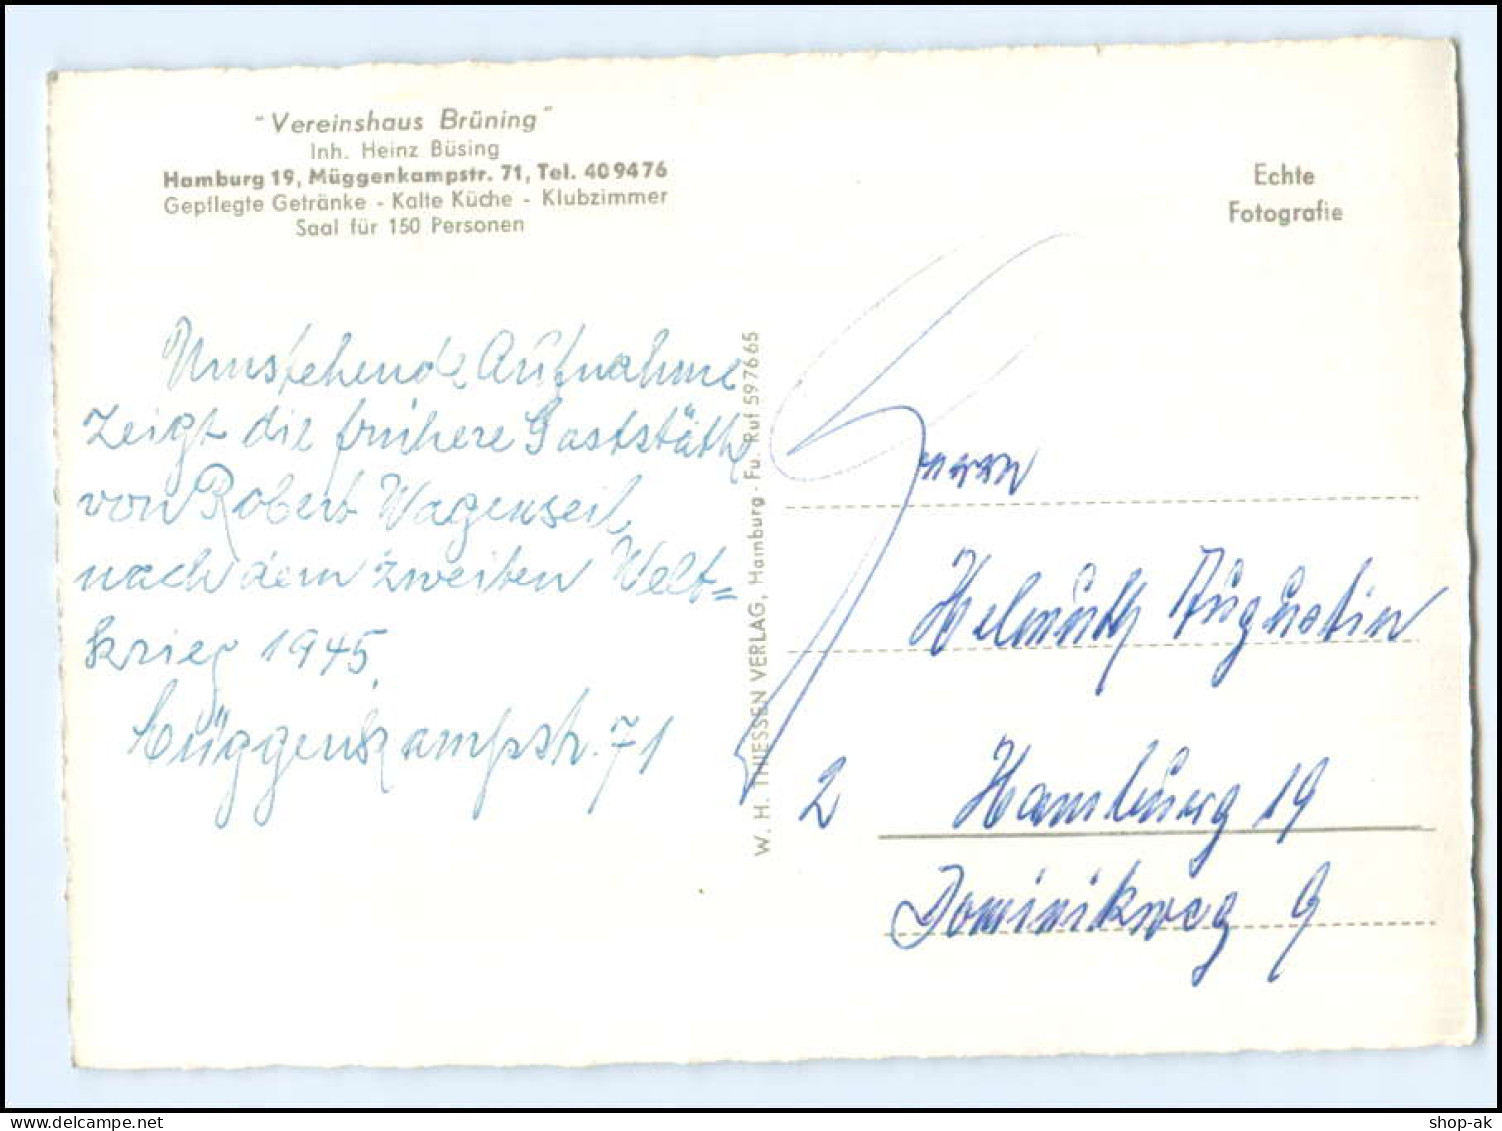 "Vereinshaus Brüning"
Inh. Heinz Büsing
Hamburg 19, Müggenkampstr. 71, Tel. 40 94 76
Gepflegte Getränke - Kalte Küche - Klubzimmer
Saal für 150 Personen
Umstehende Aufnahme
zeigt die frühere Gaststätte
von Robert Wagenseil
nach dem zweiten Welt=
krieg 1945.
Müggenkampstr. 71
W. H. THIESSEN VERLAG, Hamburg - Fu. Ruf 59 76 65
Echte
Fotografie
Herrn
Helmuth Augustin
2 Hamburg 19
Dominikweg 9
shop-ak